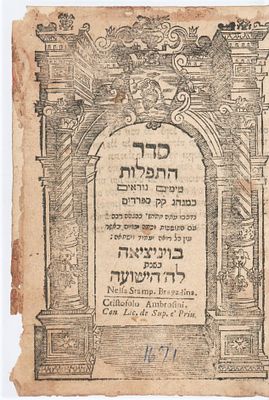 סדר
התפלות
לימים נוראים
כמנהג קק ספרדים
בויניציאה
בשנת
לה' הישועה
Nella Stamp. Bragadina.
Cristofolo Ambrosini.
Con Lic. de Sup. e Priu.
1671